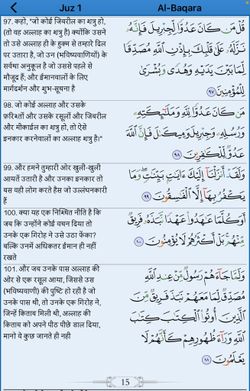 Juz 1
Al-Baqara
97. कहो, "जो कोई जिबरील का शत्रु हो,
(तो वह अल्लाह का शत्रु है) क्योंकि उसने
तो उसे अल्लाह ही के हुक्म से तम्हारे दिल
पर उतारा है, जो उन (भविष्यवाणियों) के
सर्वथा अनुकूल है जो उससे पहले से
मौजूद हैं; और ईमानवालों के लिए
मार्गदर्शन और शुभ-सूचना है
قُلْ مَن كَانَ عَدُوًّا لِّجِبْرِيلَ فَإِنَّهُۥ
نَزَّلَهُۥ عَلَىٰ قَلْبِكَ بِإِذْنِ ٱللَّهِ مُصَدِّقًا
لِّمَا بَيْنَ يَدَيْهِ وَهُدًى وَبُشْرَىٰ
لِلْمُؤْمِنِينَ
98. जो कोई अल्लाह और उसके
फ़रिश्तों और उसके रसूलों और जिबरील
और मीकाईल का शत्रु हो, तो ऐसे
इनकार करनेवालों का अल्लाह शत्रु है।"
مَن كَانَ عَدُوًّا لِّلَّهِ وَمَلَـٰٓئِكَتِهِۦ
وَرُسُلِهِۦ وَجِبْرِيلَ وَمِيكَىٰلَ فَإِنَّ ٱللَّهَ
عَدُوٌّ لِّلْكَـٰفِرِينَ
99. और हमने तुम्हारी ओर खुली-खुली
आयतें उतारी है और उनका इनकार तो
बस वही लोग करते हैस जो उल्लंघनकारी
हैं
وَلَقَدْ أَنزَلْنَآ إِلَيْكَ ءَايَـٰتٍۭ بَيِّنَـٰتٍ وَمَا
يَكْفُرُ بِهَآ إِلَّا ٱلْفَـٰسِقُونَ
100. क्या यह एक निश्चित नीति है कि
जब कि उन्होंने कोई वचन दिया तो
उनके एक गिरोह ने उसे उठा फेंका?
बल्कि उनमें अधिकतर ईमान ही नहीं
रखते
أَوَكُلَّمَا عَـٰهَدُوا۟ عَهْدًا نَّبَذَهُۥ فَرِيقٌ
مِّنْهُم بَلْ أَكْثَرُهُمْ لَا يُؤْمِنُونَ
101. और जब उनके पास अल्लाह की
ओर से एक रसूल आया, जिससे उस
(भविष्यवाणी) की पुष्टि हो रही है जो
उनके पास थी, तो उनके एक गिरोह ने,
जिन्हें किताब मिली थी, अल्लाह की
किताब को अपने पीठ पीछे डाल दिया,
मानो वे कुछ जानते ही नही
وَلَمَّا جَآءَهُمْ رَسُولٌ مِّنْ عِندِ ٱللَّهِ
مُصَدِّقٌ لِّمَا مَعَهُمْ نَبَذَ فَرِيقٌ مِّنَ
ٱلَّذِينَ أُوتُوا۟ ٱلْكِتَـٰبَ كِتَـٰبَ
ٱللَّهِ وَرَآءَ ظُهُورِهِمْ كَأَنَّهُمْ لَا
يَعْلَمُونَ
15